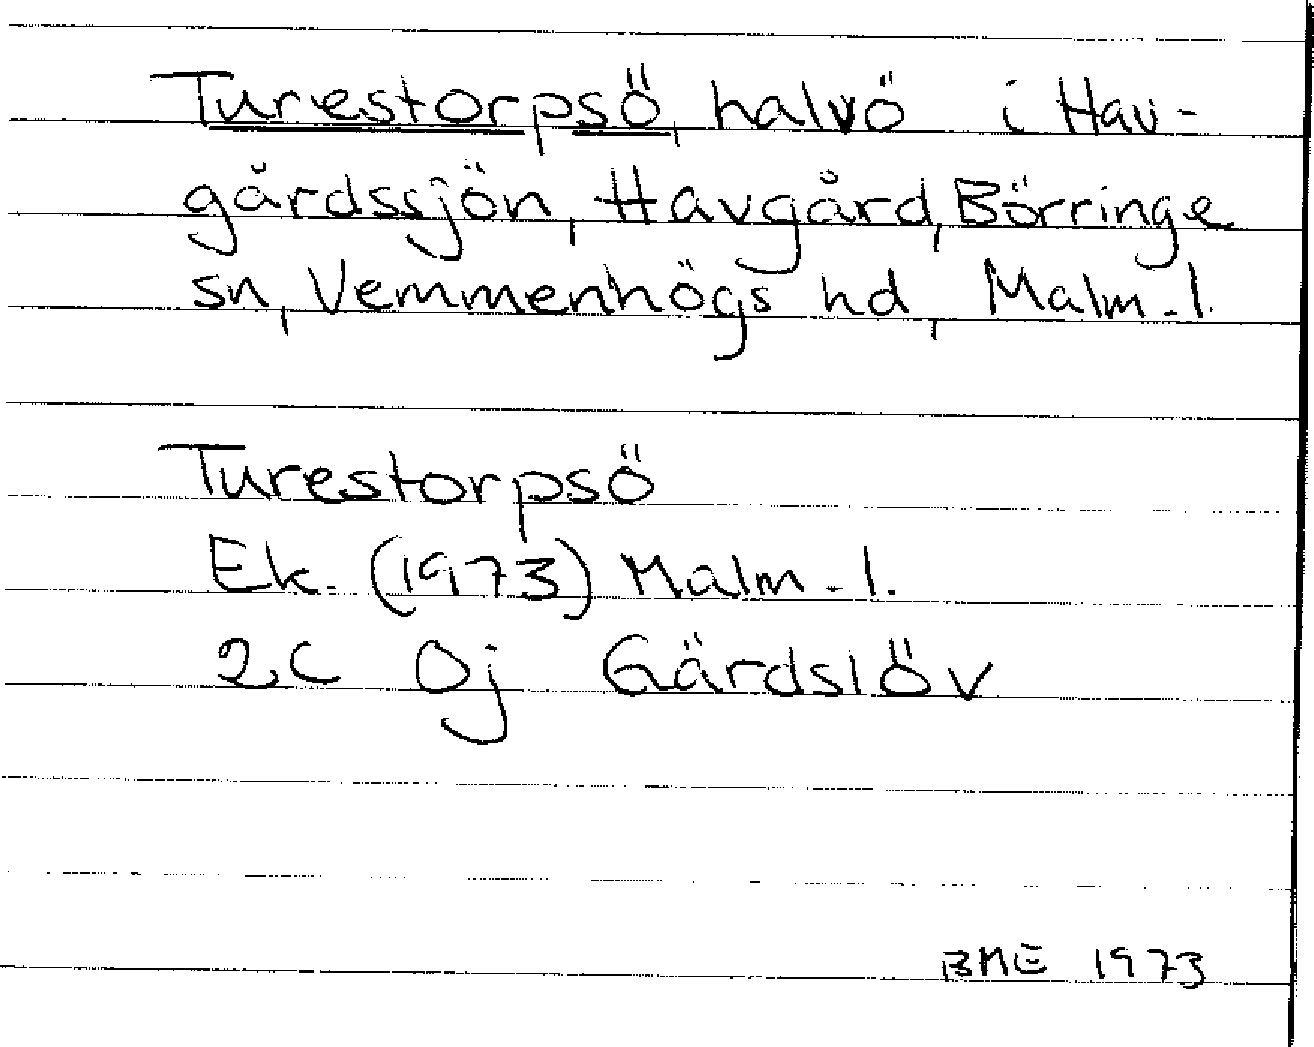 Turestorpsö, halvö i Hav-
gårdssjön, Havgård, Börringe
sn, Vemmenhögs hd, Malm. l.
Turestorpsö
Ek. (1973) Malm. l.
2C 0j Gärdslöv
BME 1973